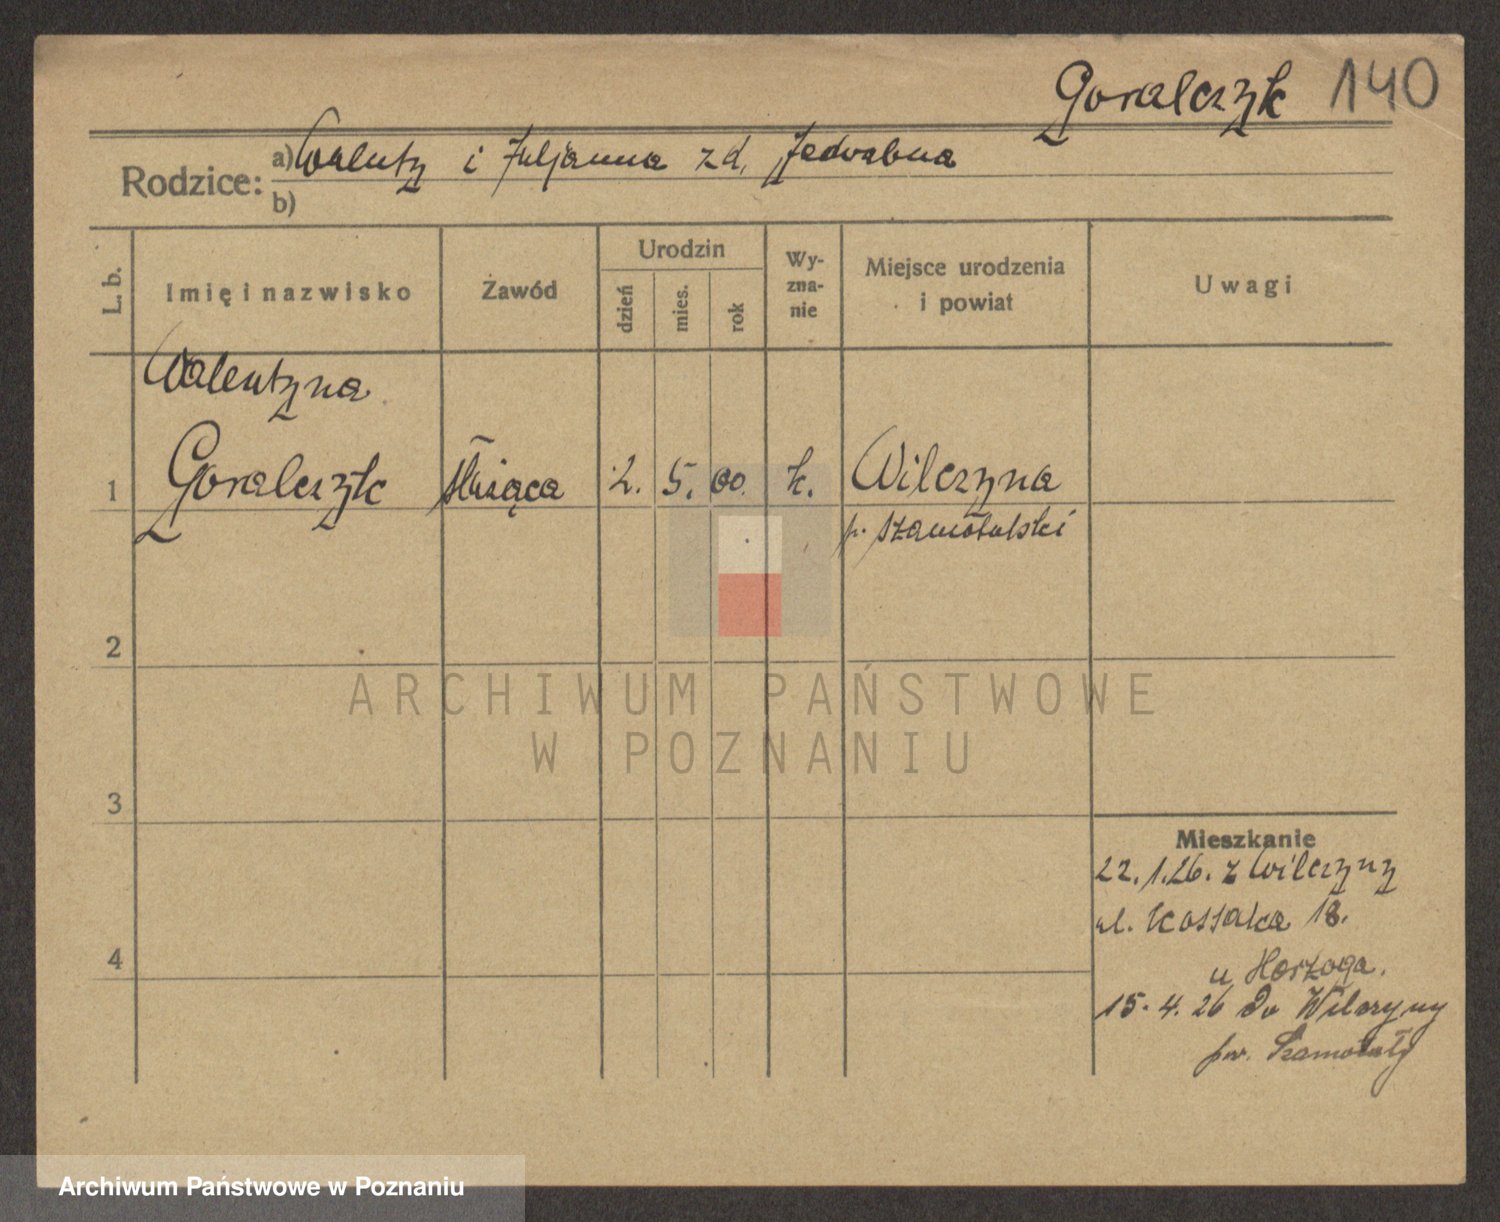 Goralczyk 140
Rodzice: a) Walenty i Juljanna zd. Jedwabna
b)
L. b.
Imię i nazwisko
Zawód
Urodzin
dzień
mies.
rok
Wy-
zna-
nie
Miejsce urodzenia
i powiat
Uwagi
Walentyna
1 Goralczyk służąca 2. 5. 00. k. Wilczyna
p. szamotulski
2
ARCHIWUM PAŃSTWOWE
W POZNANIU
3
Mieszkanie
22.1.26. z Wilczyny
ul. Kossaka 18.
u Herzoga.
4
15.4.26 do Wilczyny
pow. Szamotuły
Archiwum Państwowe w Poznaniu